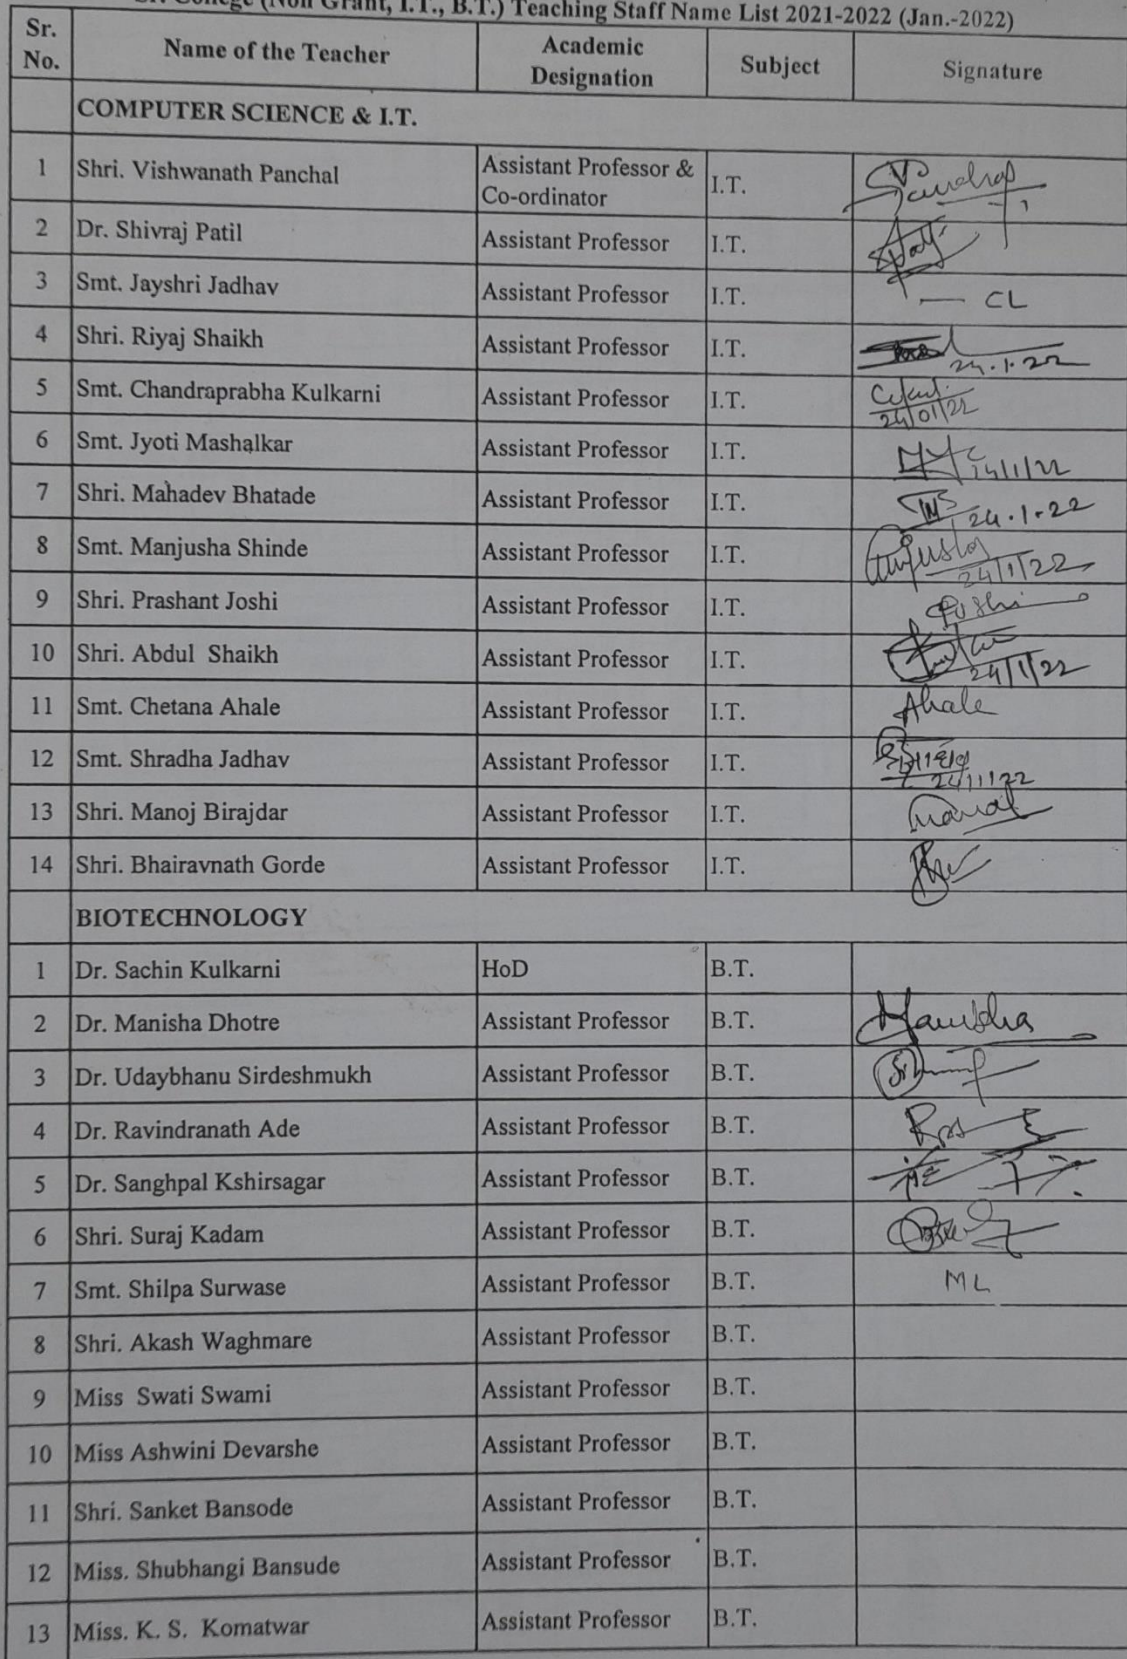 Sr. College (Non Grant, I.T., B.T.) Teaching Staff Name List 2021-2022 (Jan.-2022)
Sr. No. Name of the Teacher Academic Designation Subject Signature
COMPUTER SCIENCE & I.T.
1 Shri. Vishwanath Panchal Assistant Professor & Co-ordinator I.T.
2 Dr. Shivraj Patil Assistant Professor I.T.
3 Smt. Jayshri Jadhav Assistant Professor I.T. — CL
4 Shri. Riyaj Shaikh Assistant Professor I.T. 24.1.22
5 Smt. Chandraprabha Kulkarni Assistant Professor I.T. 24/01/22
6 Smt. Jyoti Mashalkar Assistant Professor I.T. 24/1/22
7 Shri. Mahadev Bhatade Assistant Professor I.T. 24.1.22
8 Smt. Manjusha Shinde Assistant Professor I.T. 24/1/22
9 Shri. Prashant Joshi Assistant Professor I.T.
10 Shri. Abdul Shaikh Assistant Professor I.T. 24/1/22
11 Smt. Chetana Ahale Assistant Professor I.T. Ahale
12 Smt. Shradha Jadhav Assistant Professor I.T. 24/1/22
13 Shri. Manoj Birajdar Assistant Professor I.T.
14 Shri. Bhairavnath Gorde Assistant Professor I.T.
BIOTECHNOLOGY
1 Dr. Sachin Kulkarni HoD B.T.
2 Dr. Manisha Dhotre Assistant Professor B.T. Manisha
3 Dr. Udaybhanu Sirdeshmukh Assistant Professor B.T.
4 Dr. Ravindranath Ade Assistant Professor B.T.
5 Dr. Sanghpal Kshirsagar Assistant Professor B.T.
6 Shri. Suraj Kadam Assistant Professor B.T.
7 Smt. Shilpa Surwase Assistant Professor B.T. ML
8 Shri. Akash Waghmare Assistant Professor B.T.
9 Miss Swati Swami Assistant Professor B.T.
10 Miss Ashwini Devarshe Assistant Professor B.T.
11 Shri. Sanket Bansode Assistant Professor B.T.
12 Miss. Shubhangi Bansude Assistant Professor B.T.
13 Miss. K. S. Komatwar Assistant Professor B.T.